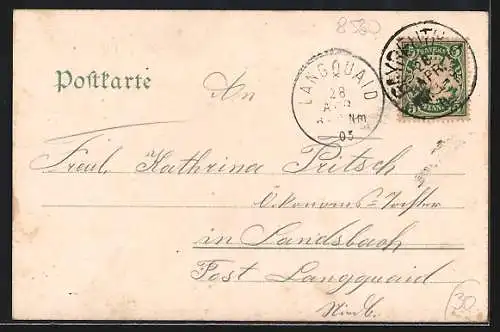 8560
Postkarte
An
LANGQUAID
28
APR
Nm
05
BAYREUTH
APR
BAYERN
5
PFENNIG
Fräul. Kathrina Pritsch
Ökonoms-Tochter
in Sandsbach
Post Langquaid
Ndrb.
30